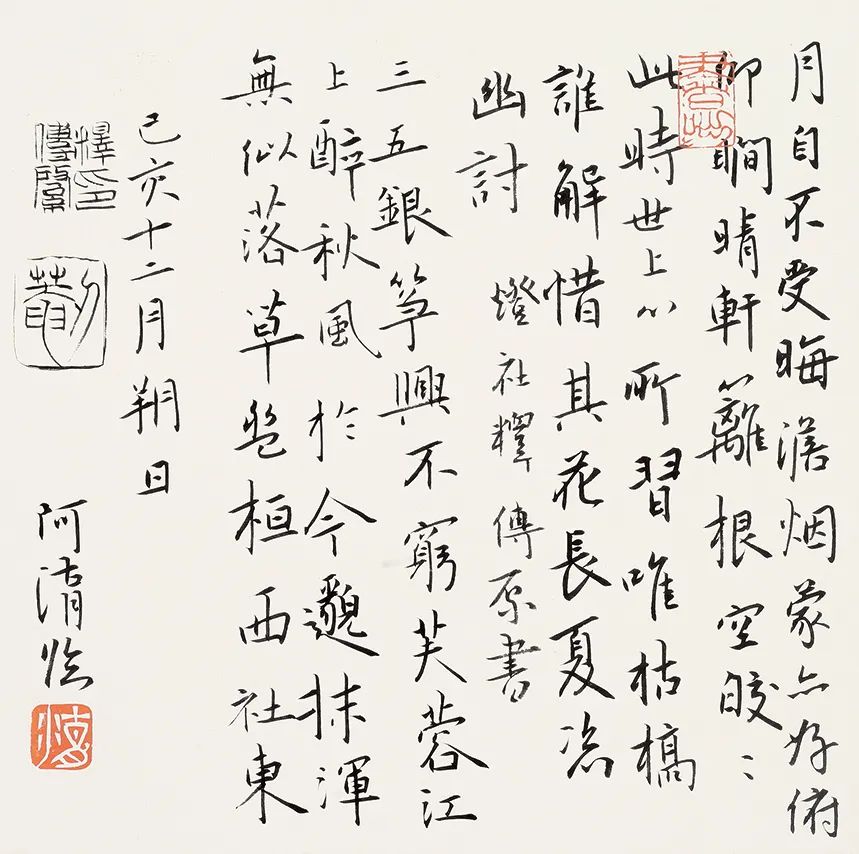 月自不受晦澹烟蒙亦好俯
仰瞷晴軒籬根空皎〻
此時世上心所習唯枯槁
誰解惜其花長夏恣
幽討
燈社釋傳原書
三五銀箏興不窮芙蓉江
上醉秋風於今邈抹渾
無似落草盤桓西社東
己亥十二月朔日
阿臨